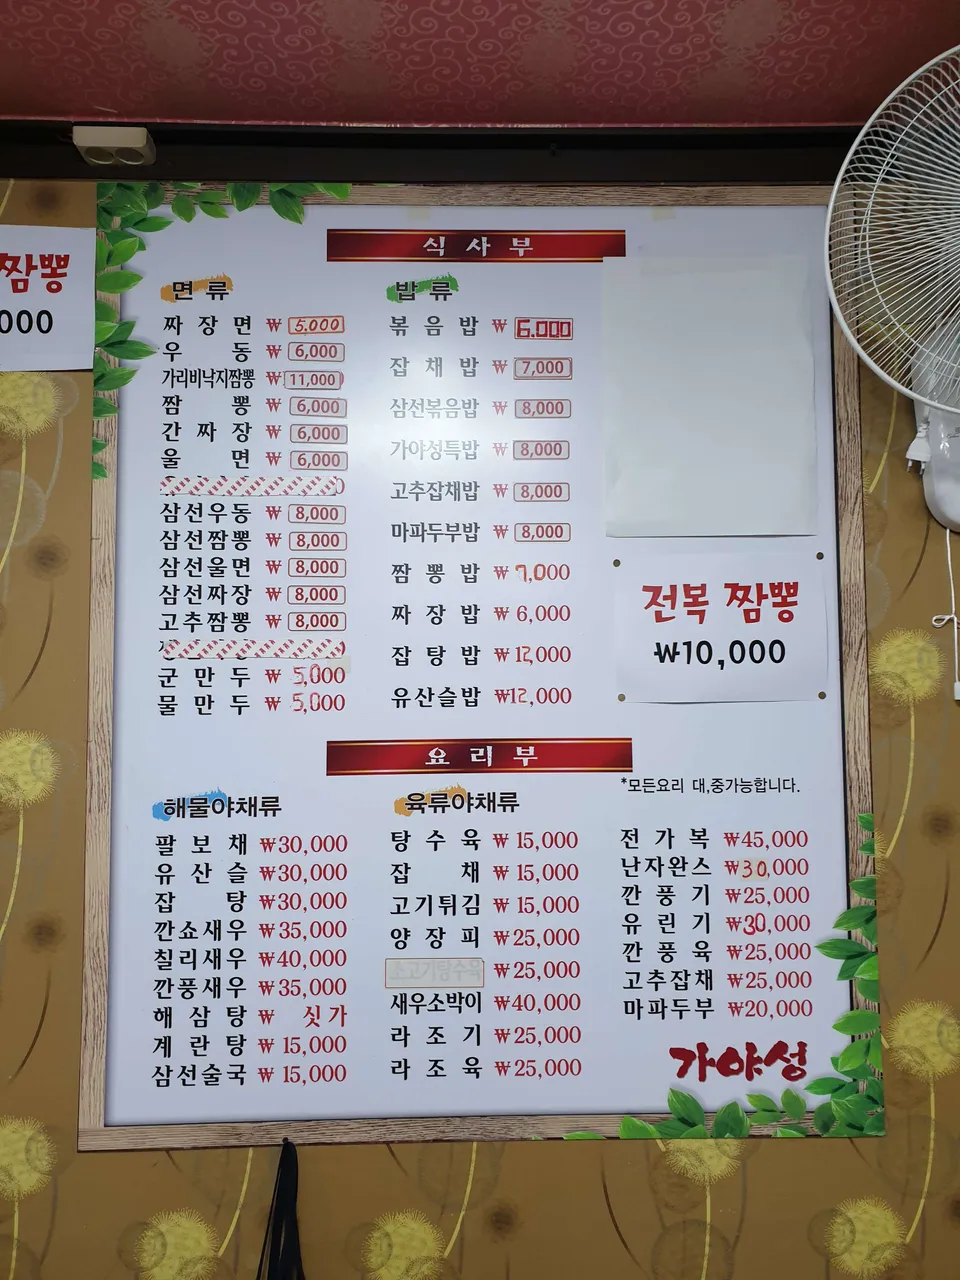 짬뽕
000
식사부
면류
짜장면 ₩ 5,000
우동 ₩ 6,000
가리비낙지짬뽕 ₩ 11,000
짬뽕 ₩ 6,000
간짜장 ₩ 6,000
울면 ₩ 6,000
삼선우동 ₩ 8,000
삼선짬뽕 ₩ 8,000
삼선울면 ₩ 8,000
삼선짜장 ₩ 8,000
고추짬뽕 ₩ 8,000
군만두 ₩ 5,000
물만두 ₩ 5,000
밥류
볶음밥 ₩ 6,000
잡채밥 ₩ 7,000
삼선볶음밥 ₩ 8,000
가야성특밥 ₩ 8,000
고추잡채밥 ₩ 8,000
마파두부밥 ₩ 8,000
짬뽕밥 ₩ 7,000
짜장밥 ₩ 6,000
잡탕밥 ₩ 12,000
유산슬밥 ₩12,000
전복 짬뽕
₩10,000
요리부
*모든요리 대,중가능합니다.
해물야채류
팔보채 ₩30,000
유산슬 ₩30,000
잡탕 ₩30,000
깐쇼새우 ₩35,000
칠리새우 ₩40,000
깐풍새우 ₩35,000
해삼탕 ₩ 싯가
계란탕 ₩ 15,000
삼선술국 ₩ 15,000
육류야채류
탕수육 ₩ 15,000
잡채 ₩ 15,000
고기튀김 ₩ 15,000
양장피 ₩25,000
소고기탕수육 ₩25,000
새우소박이 ₩40,000
라조기 ₩25,000
라조육 ₩25,000
전가복 ₩45,000
난자완스 ₩30,000
깐풍기 ₩25,000
유린기 ₩30,000
깐풍육 ₩25,000
고추잡채 ₩25,000
마파두부 ₩20,000
가야성